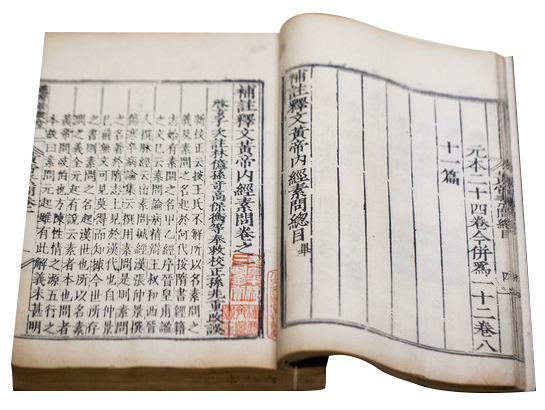 元本二十四卷今併爲一十二卷八
十一篇
補註釋文黃帝內經素問總目畢
補註釋文黃帝內經素問卷之一
啓玄子次注林億孫奇高保衡等奉敕校正孫兆重改誤
新校正云按王氏不解所以名素問之
義及素問之名起於何代按隋書經籍
志始有素問之名甲乙經序晉皇甫謐
之文已云素問論病精辨王叔和西晉
人撰脉經云出素問鍼經漢張仲景撰
傷寒卒病論集云撰用素問是則素問
之名著於隋志上見於漢代也自仲景
已前無文可見莫得而知據今世所存
之書則素問之名起漢世也所以名素
問之義全元起有說云素者本也問者
黃帝問岐伯也方陳性情之源五行之
本故曰素問元起雖有此解義未甚明